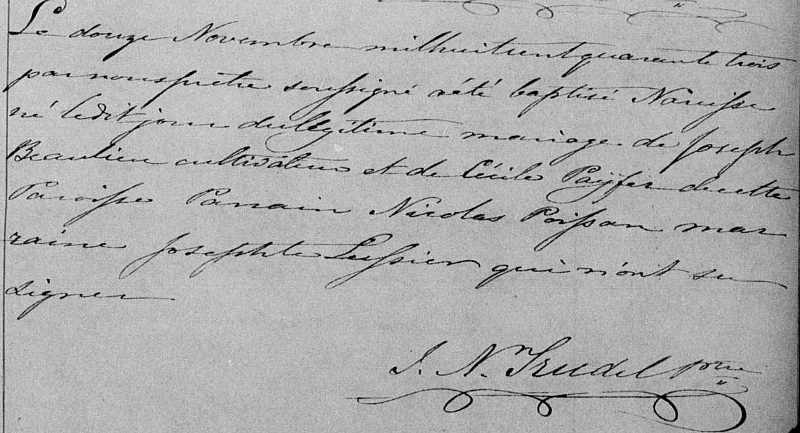 Le douze Novembre mil huit cent quarante trois
par nous prêtre soussigné a été baptisé Narcisse
né ledit jour du légitime mariage de Joseph
Beaulieu cultivateur et de Cécile de cette
Paroisse Parrain Nicolas Poisson mar
raine Josephte Lussier qui n'ont su
signer
J. N. Trudel ptre